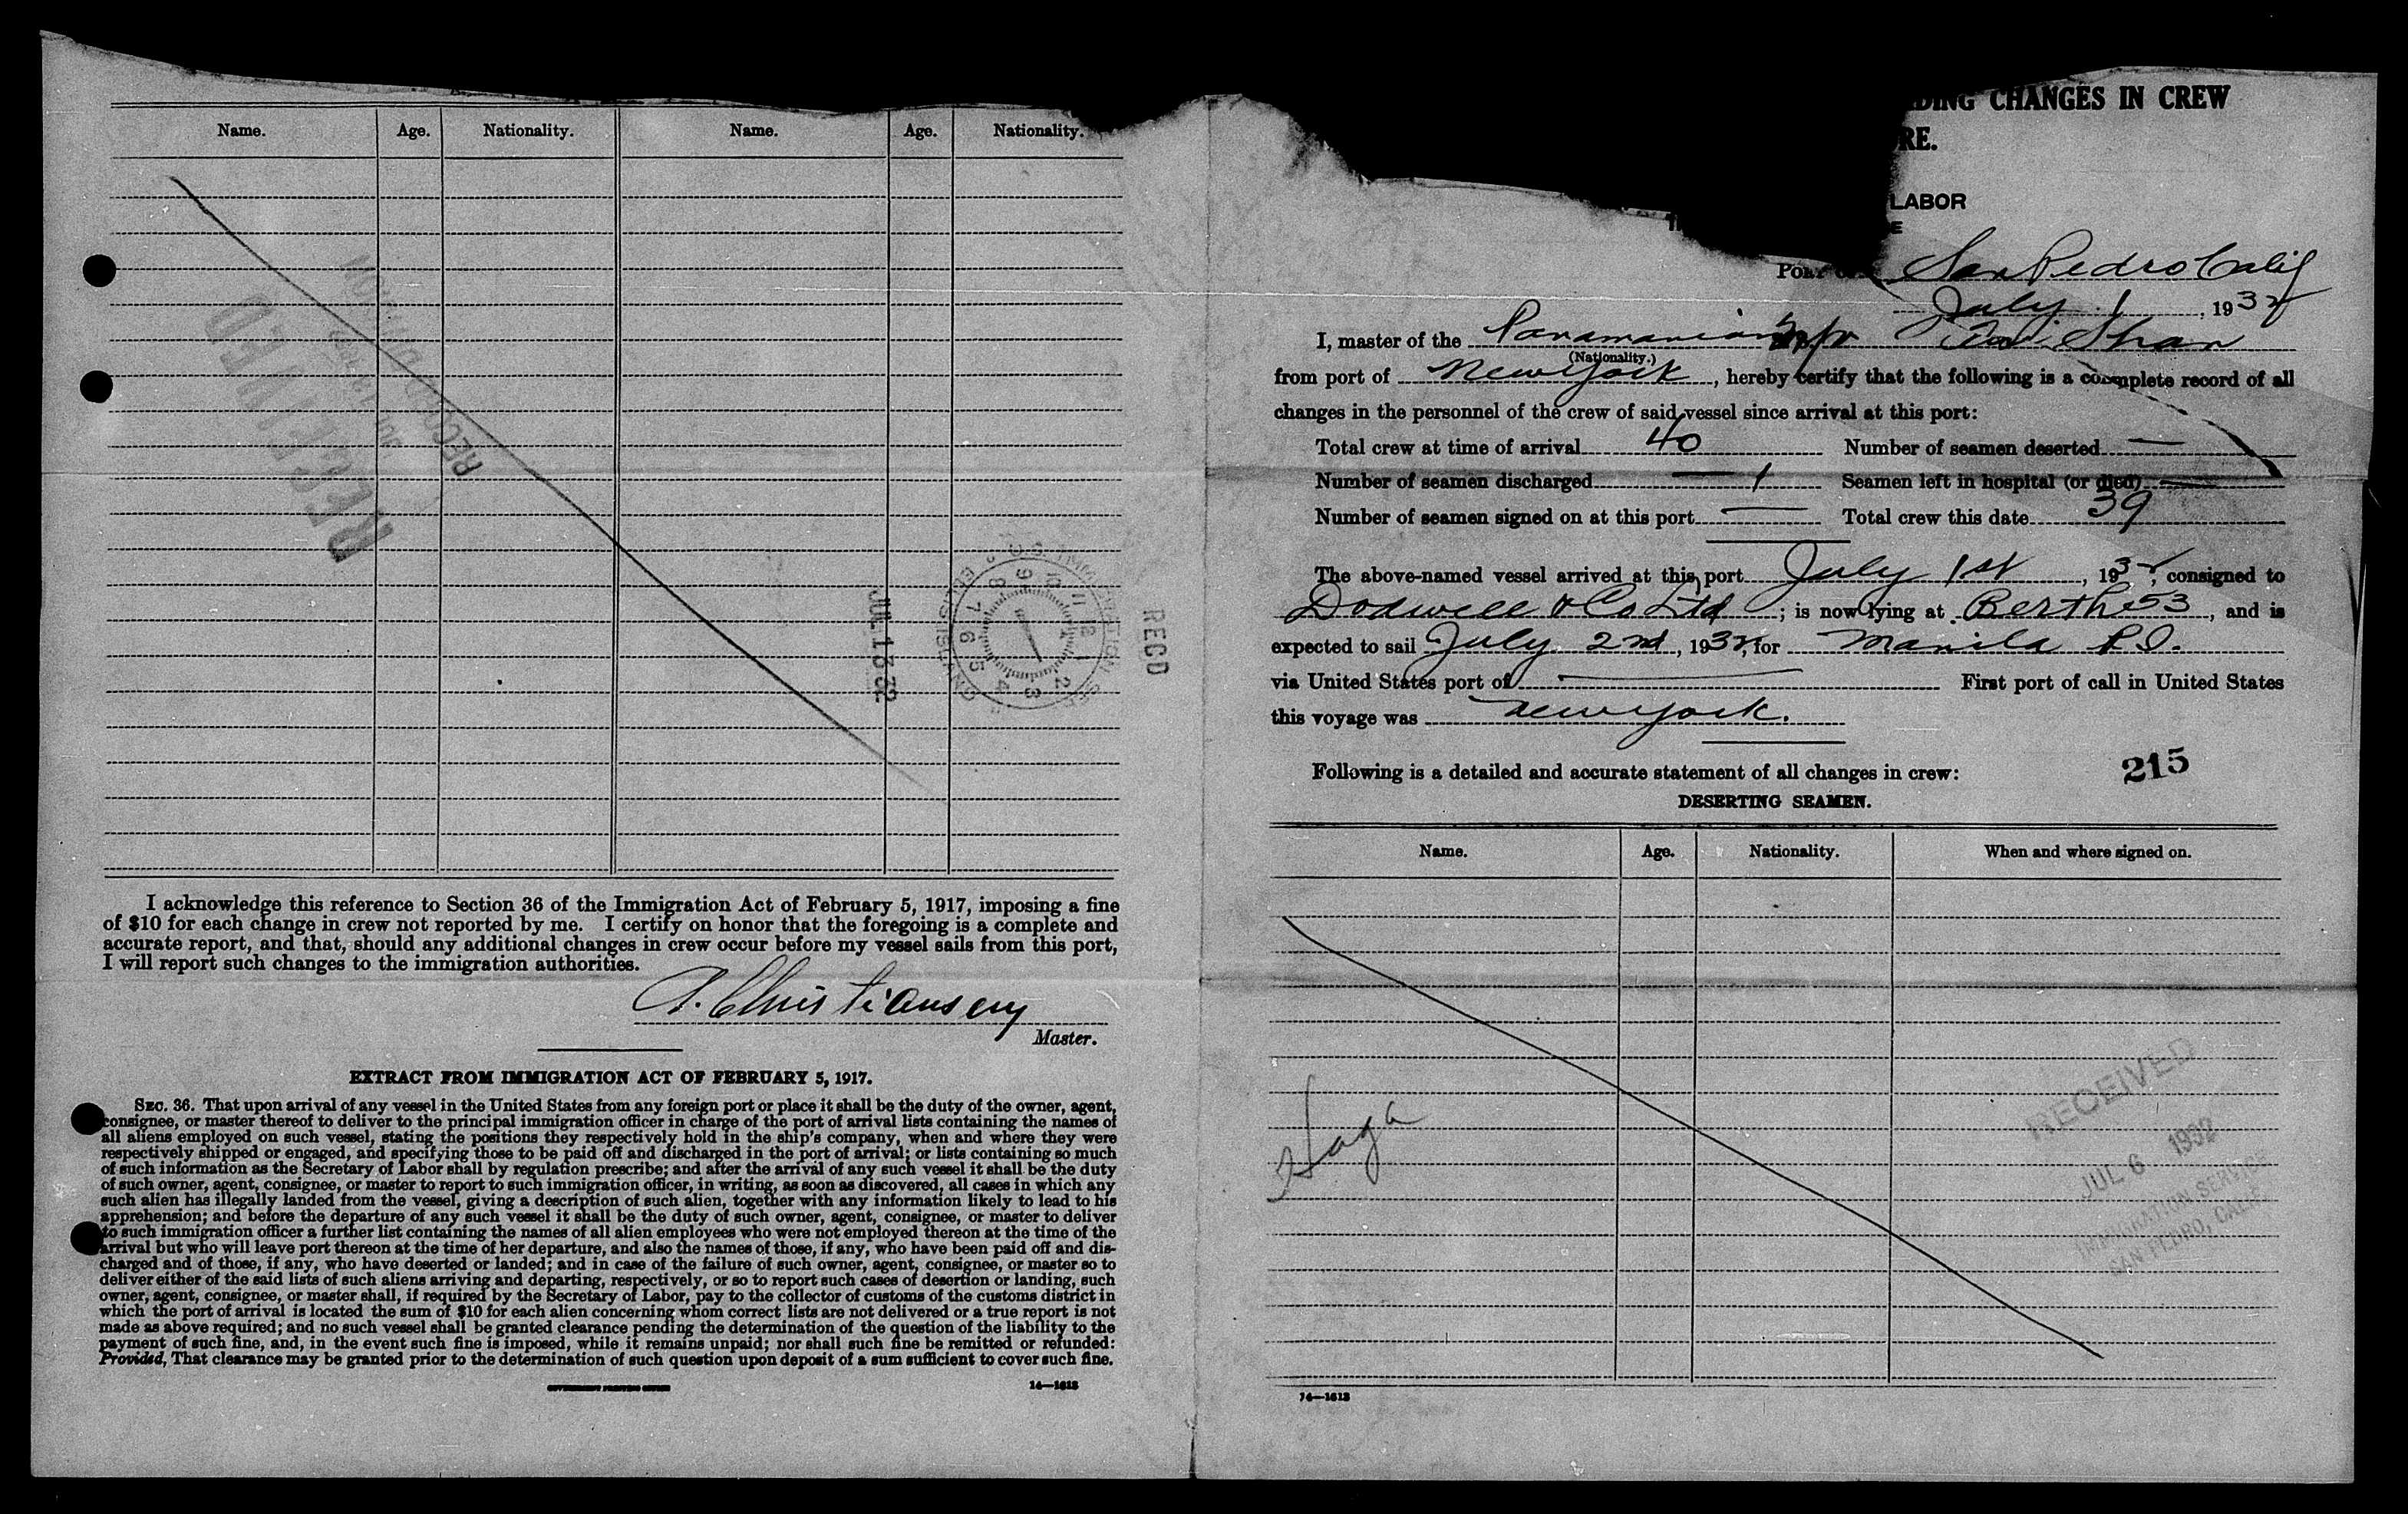 Name. Age. Nationality. Name. Age. Nationality.
RECEIVED
JUL 1 1932
REC'D
I acknowledge this reference to Section 36 of the Immigration Act of February 5, 1917, imposing a fine
of $10 for each change in crew not reported by me. I certify on honor that the foregoing is a complete and
accurate report, and that, should any additional changes in crew occur before my vessel sails from this port,
I will report such changes to the immigration authorities.
A. Christiansen
Master.
EXTRACT FROM IMMIGRATION ACT OF FEBRUARY 5, 1917.
SEC. 36. That upon arrival of any vessel in the United States from any foreign port or place it shall be the duty of the owner, agent,
consignee, or master thereof to deliver to the principal immigration officer in charge of the port of arrival lists containing the names of
all aliens employed on such vessel, stating the positions they respectively hold in the ship's company, when and where they were
respectively shipped or engaged, and specifying those to be paid off and discharged in the port of arrival; or lists containing so much
of such information as the Secretary of Labor shall by regulation prescribe; and after the arrival of any such vessel it shall be the duty
of such owner, agent, consignee, or master to report to such immigration officer, in writing, as soon as discovered, all cases in which any
such alien has illegally landed from the vessel, giving a description of such alien, together with any information likely to lead to his
apprehension; and before the departure of any such vessel it shall be the duty of such owner, agent, consignee, or master to deliver
to such immigration officer a further list containing the names of all alien employees who were not employed thereon at the time of the
arrival but who will leave port thereon at the time of her departure, and also the names of those, if any, who have been paid off and dis-
charged and of those, if any, who have deserted or landed; and in case of the failure of such owner, agent, consignee, or master so to
deliver either of the said lists of such aliens arriving and departing, respectively, or so to report such cases of desertion or landing, such
owner, agent, consignee, or master shall, if required by the Secretary of Labor, pay to the collector of customs of the customs district in
which the port of arrival is located the sum of $10 for each alien concerning whom correct lists are not delivered or a true report is not
made as above required; and no such vessel shall be granted clearance pending the determination of the question of the liability to the
payment of such fine, and, in the event such fine is imposed, while it remains unpaid; nor shall such fine be remitted or refunded:
Provided, That clearance may be granted prior to the determination of such question upon deposit of a sum sufficient to cover such fine.
GOVERNMENT PRINTING OFFICE 14—1613
DING CHANGES IN CREW
RE.
LABOR
E
PORT OF San Pedro Calif
July 1, 1932
I, master of the Panamanian M/V Tai Shan
(Nationality.)
from port of New York, hereby certify that the following is a complete record of all
changes in the personnel of the crew of said vessel since arrival at this port:
Total crew at time of arrival 40 Number of seamen deserted —
Number of seamen discharged — 1 Seamen left in hospital (or died) —
Number of seamen signed on at this port — Total crew this date 39
The above-named vessel arrived at this port July 1st, 1932, consigned to
Dodwell & Co Ltd; is now lying at Berth 53, and is
expected to sail July 2nd, 1932, for Manila P.I.
via United States port of — First port of call in United States
this voyage was New York.
Following is a detailed and accurate statement of all changes in crew: 215
DESERTING SEAMEN.
Name. Age. Nationality. When and where signed on.
Haga
RECEIVED
JUL 6 1932
IMMIGRATION SERVICE
SAN PEDRO, CALIF.
14—1613